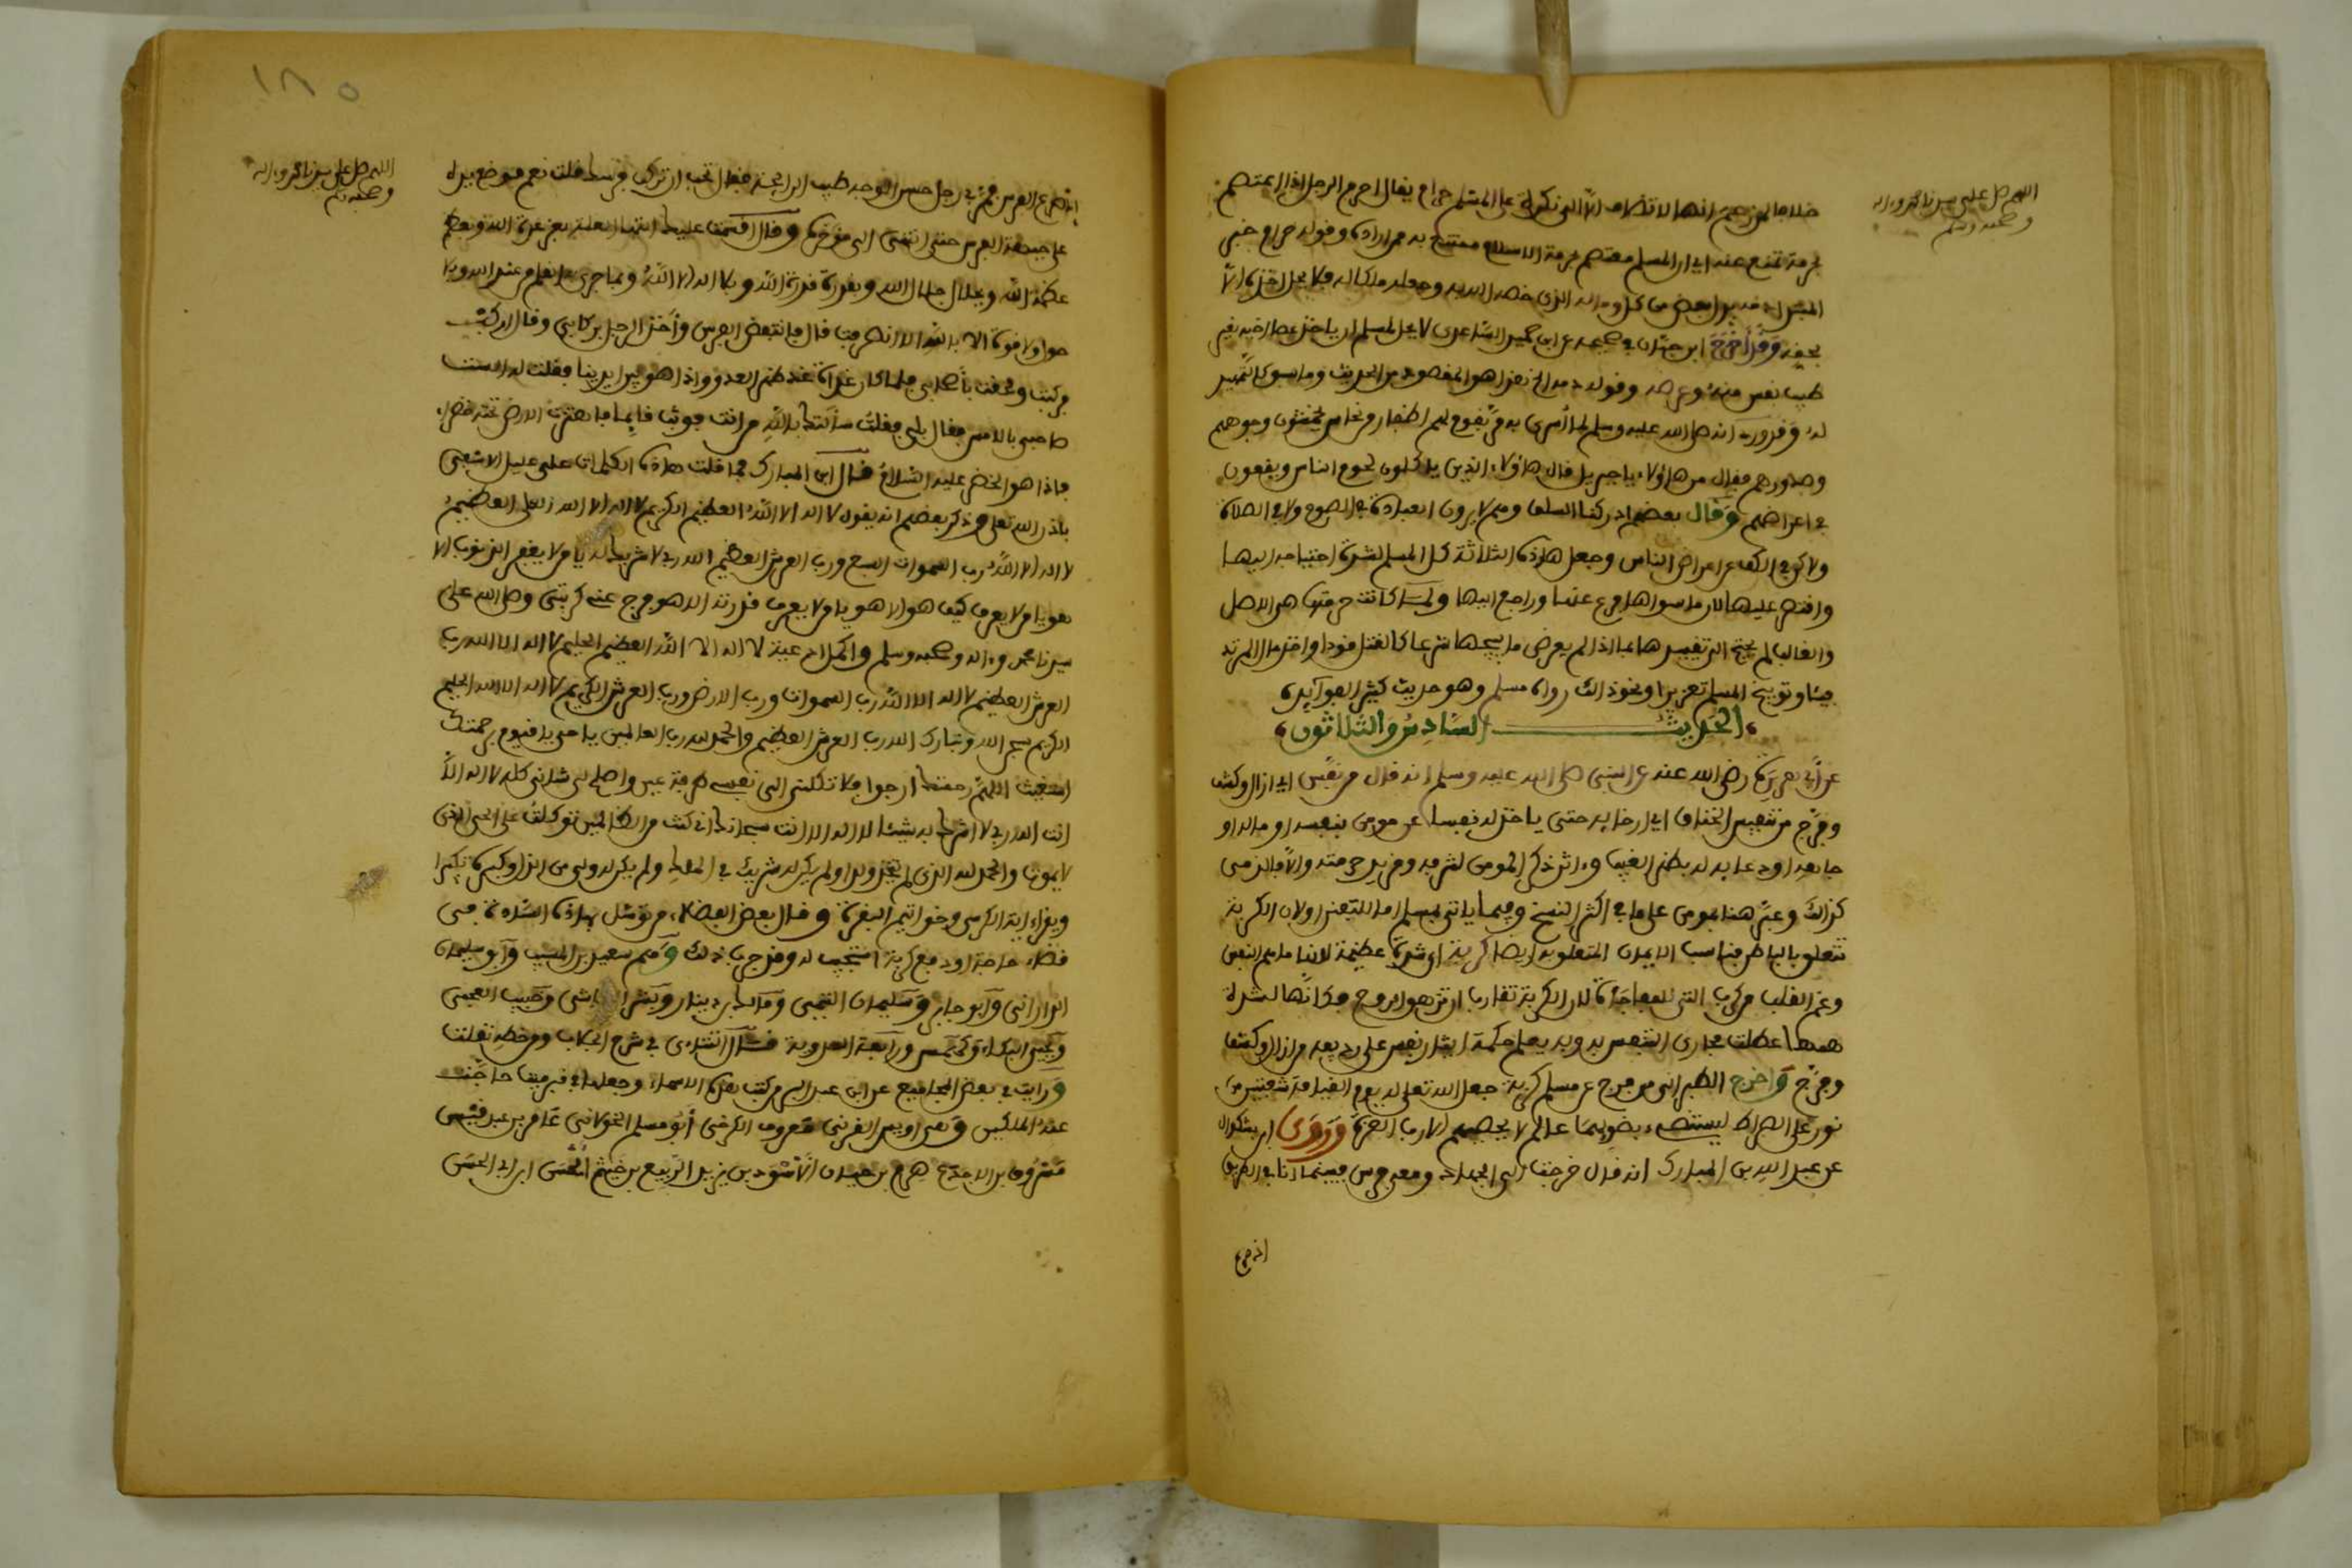 اللهم صل على سيدنا محمد وءاله
وصحبه وسلم
خلافا لمن زعم انها لا تضاف الا الى نكرة على المسلم حرام يقال احرم الرجل اذا اعتصم
بحرمة تمنع عنه اي ان المسلم معتصم بحرمة الاسلام ممتنع به ممن اراده وقوله حرام خبر
المبتدإ دمه بدل بعض من كل وماله الذي
بحقه وقد أخرج ابن حبان في صحيحه عن ابي حميد الساعدي لا يحل لمسلم ان ياخذ عصا اخيه بغير
طيب نفس منه وعرضه وقوله دمه الخ هذا هو المقصود من الحديث وما سواه كالتمهيد
له وقد ورد انه صلى الله عليه وسلم لما أسري به مر بقوم لهم اظفار من نحاس يخمشون وجوههم
وصدورهم فقال من هاؤلاء يا جبريل قال هاؤلاء الذين ياكلون لحوم الناس ويقعون
في اعراضهم وقال بعضهم ادركنا السلف وهم لا يرون العبادة في الصوم ولا في الصلاة
ولاكن في الكف عن اعراض الناس وجعل هاذه الثلاثة كل المسلم لشدة احتياجه اليها
واقتصر عليها لان ما سواها فرع عنها وراجع اليها ولما كانت حرمتها هي الاصل
والغالب لم يحتج الى تقييدها بما اذا لم يعرض ما يبيحها شرعا كالقتل قودا واخذ مال المرتد
فيئا وتوبيخ المسلم تعزيرا ونحو ذالك رواه مسلم وهو حديث كثير الفوآئد
الحديث السادس والثلاثون
عن أبي هريرة رضي الله عنه عن النبي صلى الله عليه وسلم انه قال من نفس اي ازال وكشف
وفرج من تنفيس الخناق اي ارخايه حتى ياخذ له نفسا عن مومن بنفسه او ماله او
جاهه او دعايه له بظهر الغيب وءاثر ذكر المومن لشرفه ومزيد حرمته والا فالذمي
كذالك وعبر هنا بمومن على ما في اكثر النسخ وفيما ياتي بمسلم اما للتفنن او لان الكربة
تتعلق بالباطن فناسب الايمان المتعلق به ايضا كربة اي شدة عظيمة لانها ما يهم النفس
وغم القلب من كرب التي للمفاجأة لان الكربة تقارب ان تزهق الروح فكأنها لشدة
همها عطلت مجاري التنفس به وبه يعلم حكمة ايثار نفس على رديفه من ازال وكشف
وفرج واخرج الطبراني من فرج عن مسلم كربة جعل الله تعالى له يوم القيامة شعبتين من
نور على الصراط يستضيء بضوئهما عالم لا يحصيهم الا رب العزة وروى ابن بشكوال
عن عبد الله بن المبارك انه قال خرجت الى الجهاد ومعي فرس فبينما انا في الطريق
اذ صرع
١٨٥
اللهم صل على سيدنا محمد وءاله
وصحبه وسلم
اذ صرع الفرس فمر بي رجل حسن الوجه طيب الرائحة فقال تحب ان تركب فرسك قلت نعم فوضع يده
على جبهة الفرس حتى انتهى الى مؤخره وقال اقسمت عليك ايتها العلة بعزة عزة الله وبعظمة
عظمة الله وبجلال جلال الله وبقدرة قدرة الله وبلا اله الا الله وبما جرى به القلم من عند الله وبلا
حول ولا قوة الا بالله الا انصرفت قال فانتفض الفرس وأخذ الرجل بركابي وقال اركب
فركبت ولحقت بأصحابي فلما كان غداة غد ظهر العدو واذا هو بين ايدينا فقلت له الست
صاحبي بالامس فقال بلى فقلت سألتك بالله من انت فوثب قائما فاهتزت الارض تحته خضراء
فاذا هو الخضر عليه السلام قال ابن المبارك فما قلت هاذه الكلمات على عليل الا شفي
باذن الله تعلى وذكر بعضهم انه يقول لا اله الا الله العظيم الكريم لا اله الا الله العلي العظيم
لا اله الا الله رب السموات السبع ورب العرش العظيم الله ربي لا شريك له يا من لا يغفر الذنوب الا
هو يا من لا يعرف كيف هو الا هو يا من لا يعرف قدرته الا هو فرج عني كربتي وصل الله على
سيدنا محمد وءاله وصحبه وسلم واكمل ادعية لا اله الا الله العظيم الحليم لا اله الا الله رب
العرش العظيم لا اله الا الله رب السموات ورب الارض ورب العرش الكريم لا اله الا الله الحليم
الكريم سبحن الله وتبارك الله رب العرش العظيم والحمد لله رب العالمين يا حي يا قيوم برحمتك
استغيث اللهم رحمتك ارجوا فلا تكلني الى نفسي طرفة عين واصلح لي شاني كله لا اله الا
انت الله ربي لا اشرك به شيئا لا اله الا انت سبحانك اني كنت من الظالمين توكلت على الحي الذي
لا يموت والحمد لله الذي لم يتخذ ولدا ولم يكن له شريك في الملك ولم يكن له ولي من الذل وكبره تكبيرا
ويقراء اية الكرسي وخواتيم البقرة وقال بعض الفضلاء من توسل بهاذه السادة في
قضاء حاجة او دفع كربة استجيب له وقد جرب ذلك وهم سعيد بن المسيب وابو سليمان
الداراني وابو حازم وسليمان التيمي ومالك بن دينار وحبيب العجمي
ويحيى البكاء وكهمس ورابعة العدوية قال التتاءي في شرح الجلاب ومن خطه نقلت
ورايت في بعض المجاميع عن ابن عبد البر من كتب هذه الاسماء وجعلها في قبر ميت حاجت
عنه الملكين وهي اويس القرني معروف الكرخي أبو مسلم الخولاني عامر بن عبد قيس
مسروق بن الاجدع هرم بن حيان الأسود بن يزيد الربيع بن خيثم الحسن ابن ابي الحسن